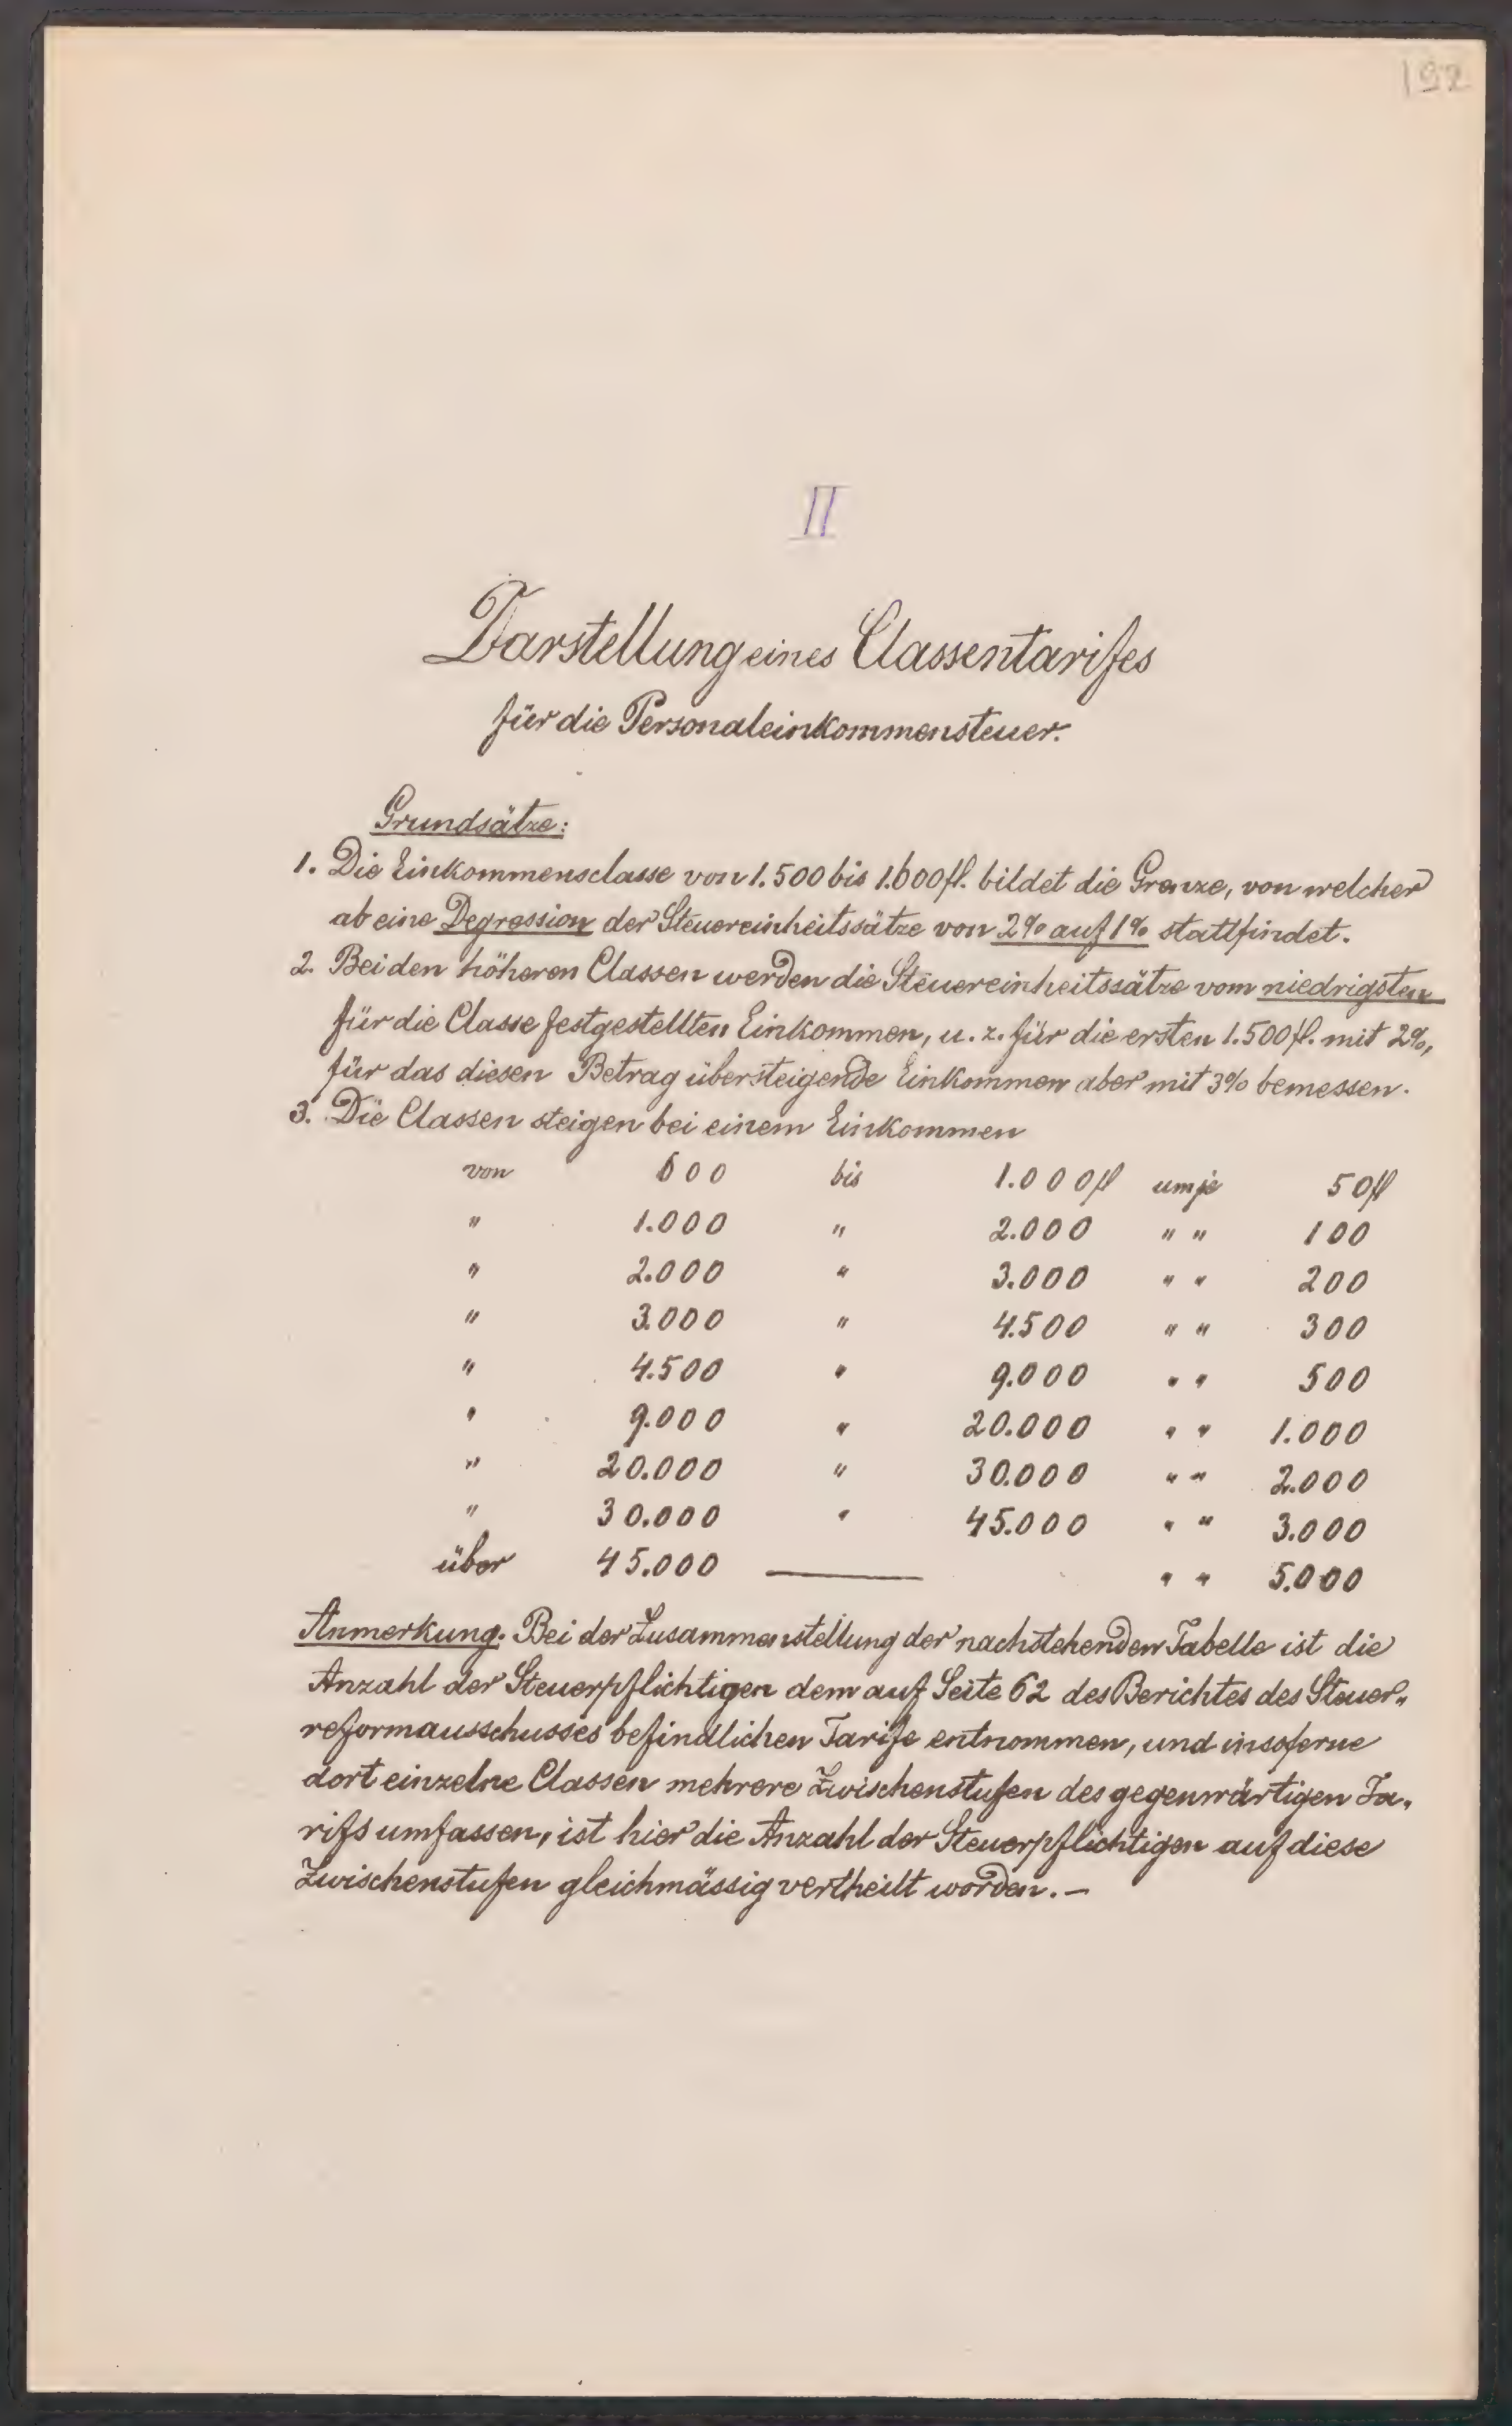 192
II
Darstellung eines Classentarifes
für die Personaleinkommensteuer.
Grundsätze:
1. Die Einkommensclasse von 1.500 bis 1.600 fl. bildet die Grenze, von welcher
ab eine Degression der Steuereinheitssätze von 2% auf 1% stattfindet.
2. Bei den höheren Classen werden die Steuereinheitssätze vom niedrigsten
für die Classe festgestellten Einkommen, u. z. für die ersten 1.500 fl. mit 2%,
für das diesen Betrag übersteigende Einkommen aber mit 3% bemessen.
3. Die Classen steigen bei einem Einkommen
von 600 bis 1.000 fl um je 50 fl
" 1.000 " 2.000 " " 100
" 2.000 " 3.000 " " 200
" 3.000 " 4.500 " " 300
" 4.500 " 9.000 " " 500
" 9.000 " 20.000 " " 1.000
" 20.000 " 30.000 " " 2.000
" 30.000 " 45.000 " " 3.000
über 45.000 — " " 5.000
Anmerkung. Bei der Zusammenstellung der nachstehenden Tabelle ist die
Anzahl der Steuerpflichtigen dem auf Seite 62 des Berichtes des Steuer„
reformausschusses befindlichen Tarife entnommen, und insoferne
dort einzelne Classen mehrere Zwischenstufen des gegenwärtigen Ta„
rifs umfassen, ist hier die Anzahl der Steuerpflichtigen auf diese
Zwischenstufen gleichmässig vertheilt worden. –